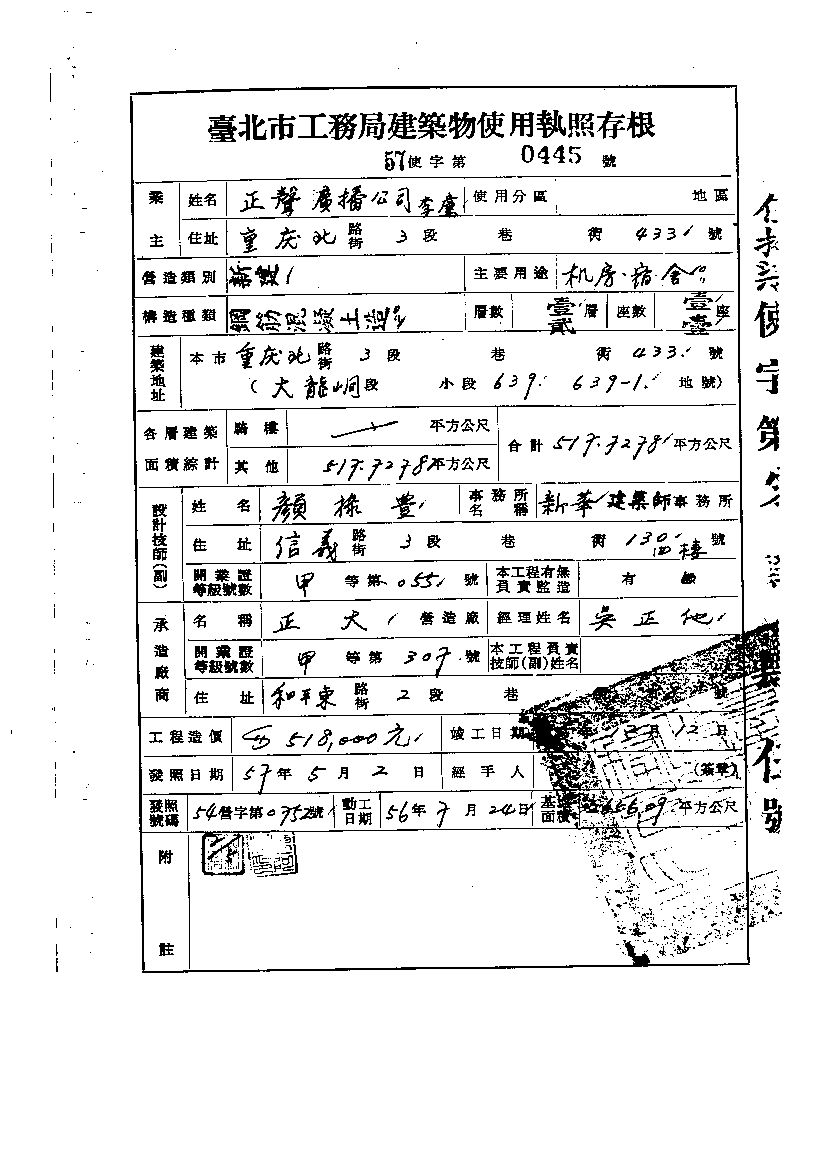 臺北市工務局建築物使用執照存根
57使字第 0445 號
業主 姓名 正聲廣播公司李廉 使用分區 地區
住址 重庆北 路街 3段 巷 街 433 號
營造類別 新建 主要用途 机房.宿舍
構造種類 鋼筋混凝土造 層數 壹貳 層 座數 壹壹 座
建築地址 本市重庆北 路街 3段 巷 街 433 號
(大龍峒段 小段 639 639-1 地號)
各層建築面積綜計 騎樓 平方公尺 合計 517.7278 平方公尺
其他 517.7278 平方公尺
設計技師(副) 姓名 顏 豊 事務所名稱 新華建築師事務所
住址 信義 路街 3段 巷 街 130 號 四樓
開業證等級號數 甲等第 055 號 本工程有無負責監造 有
承造廠商 名稱 正大 營造廠 經理姓名 吳正
開業證等級號數 甲等第 307 號 本工程負責技師(副)姓名
住址 和平東 路街 2段 巷 號
工程造價 518,000元 竣工日期 年12月12日
發照日期 57年5月2日 經手人 (簽章)
發照號碼 54營字第0752號 動工日期 56年7月24日 基地面積 平方公尺
附註
使字第 號